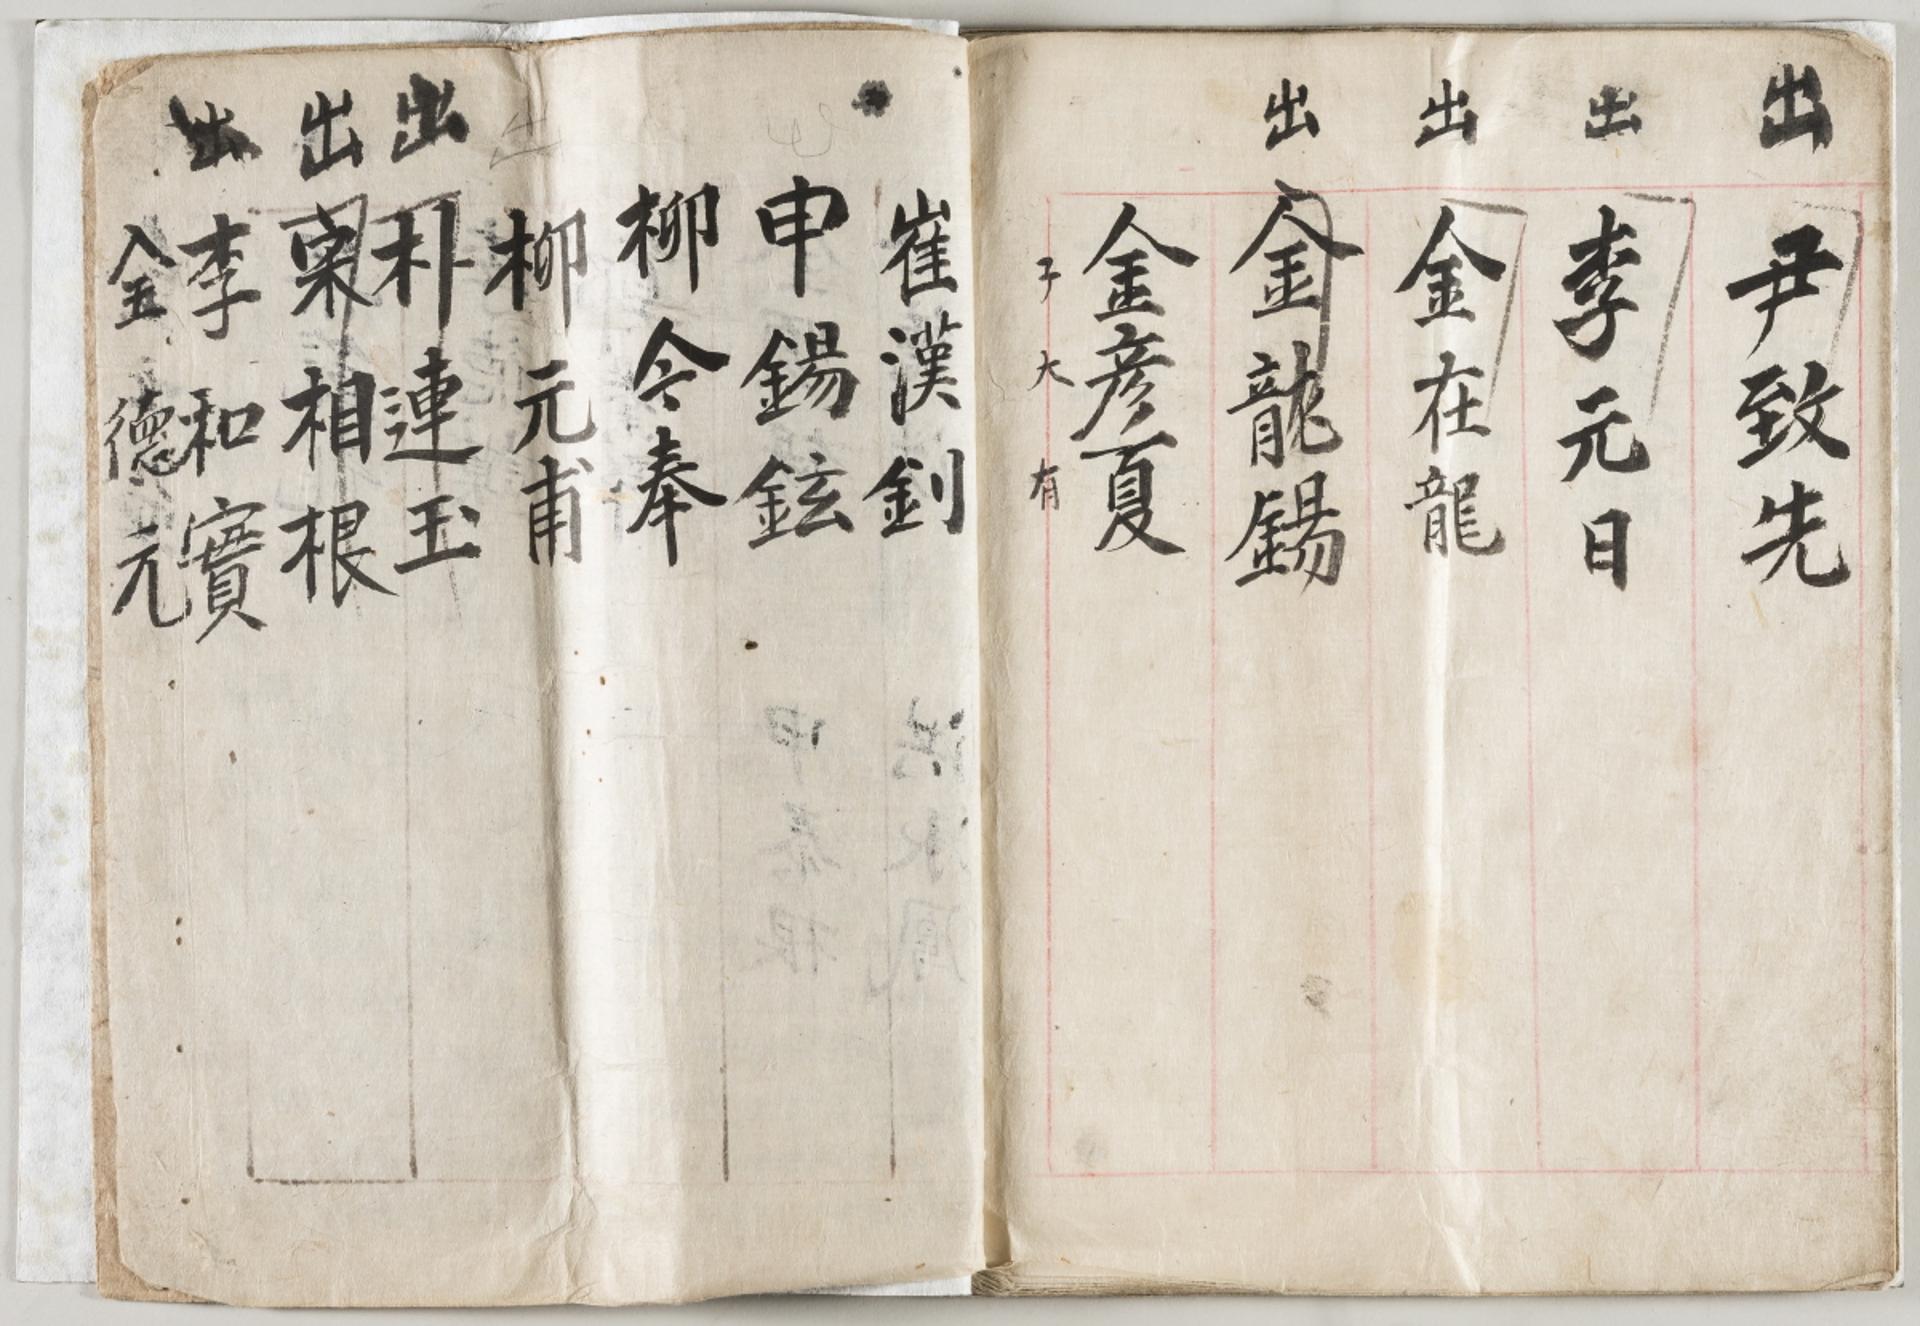 出 尹致先
出 李元日
出 金在龍
出 金龍錫
金彦夏
子 大有
崔漢釗
申錫鉉
柳令奉
出 柳元甫
出 朴連玉
出 相根
出 李和實
金德元